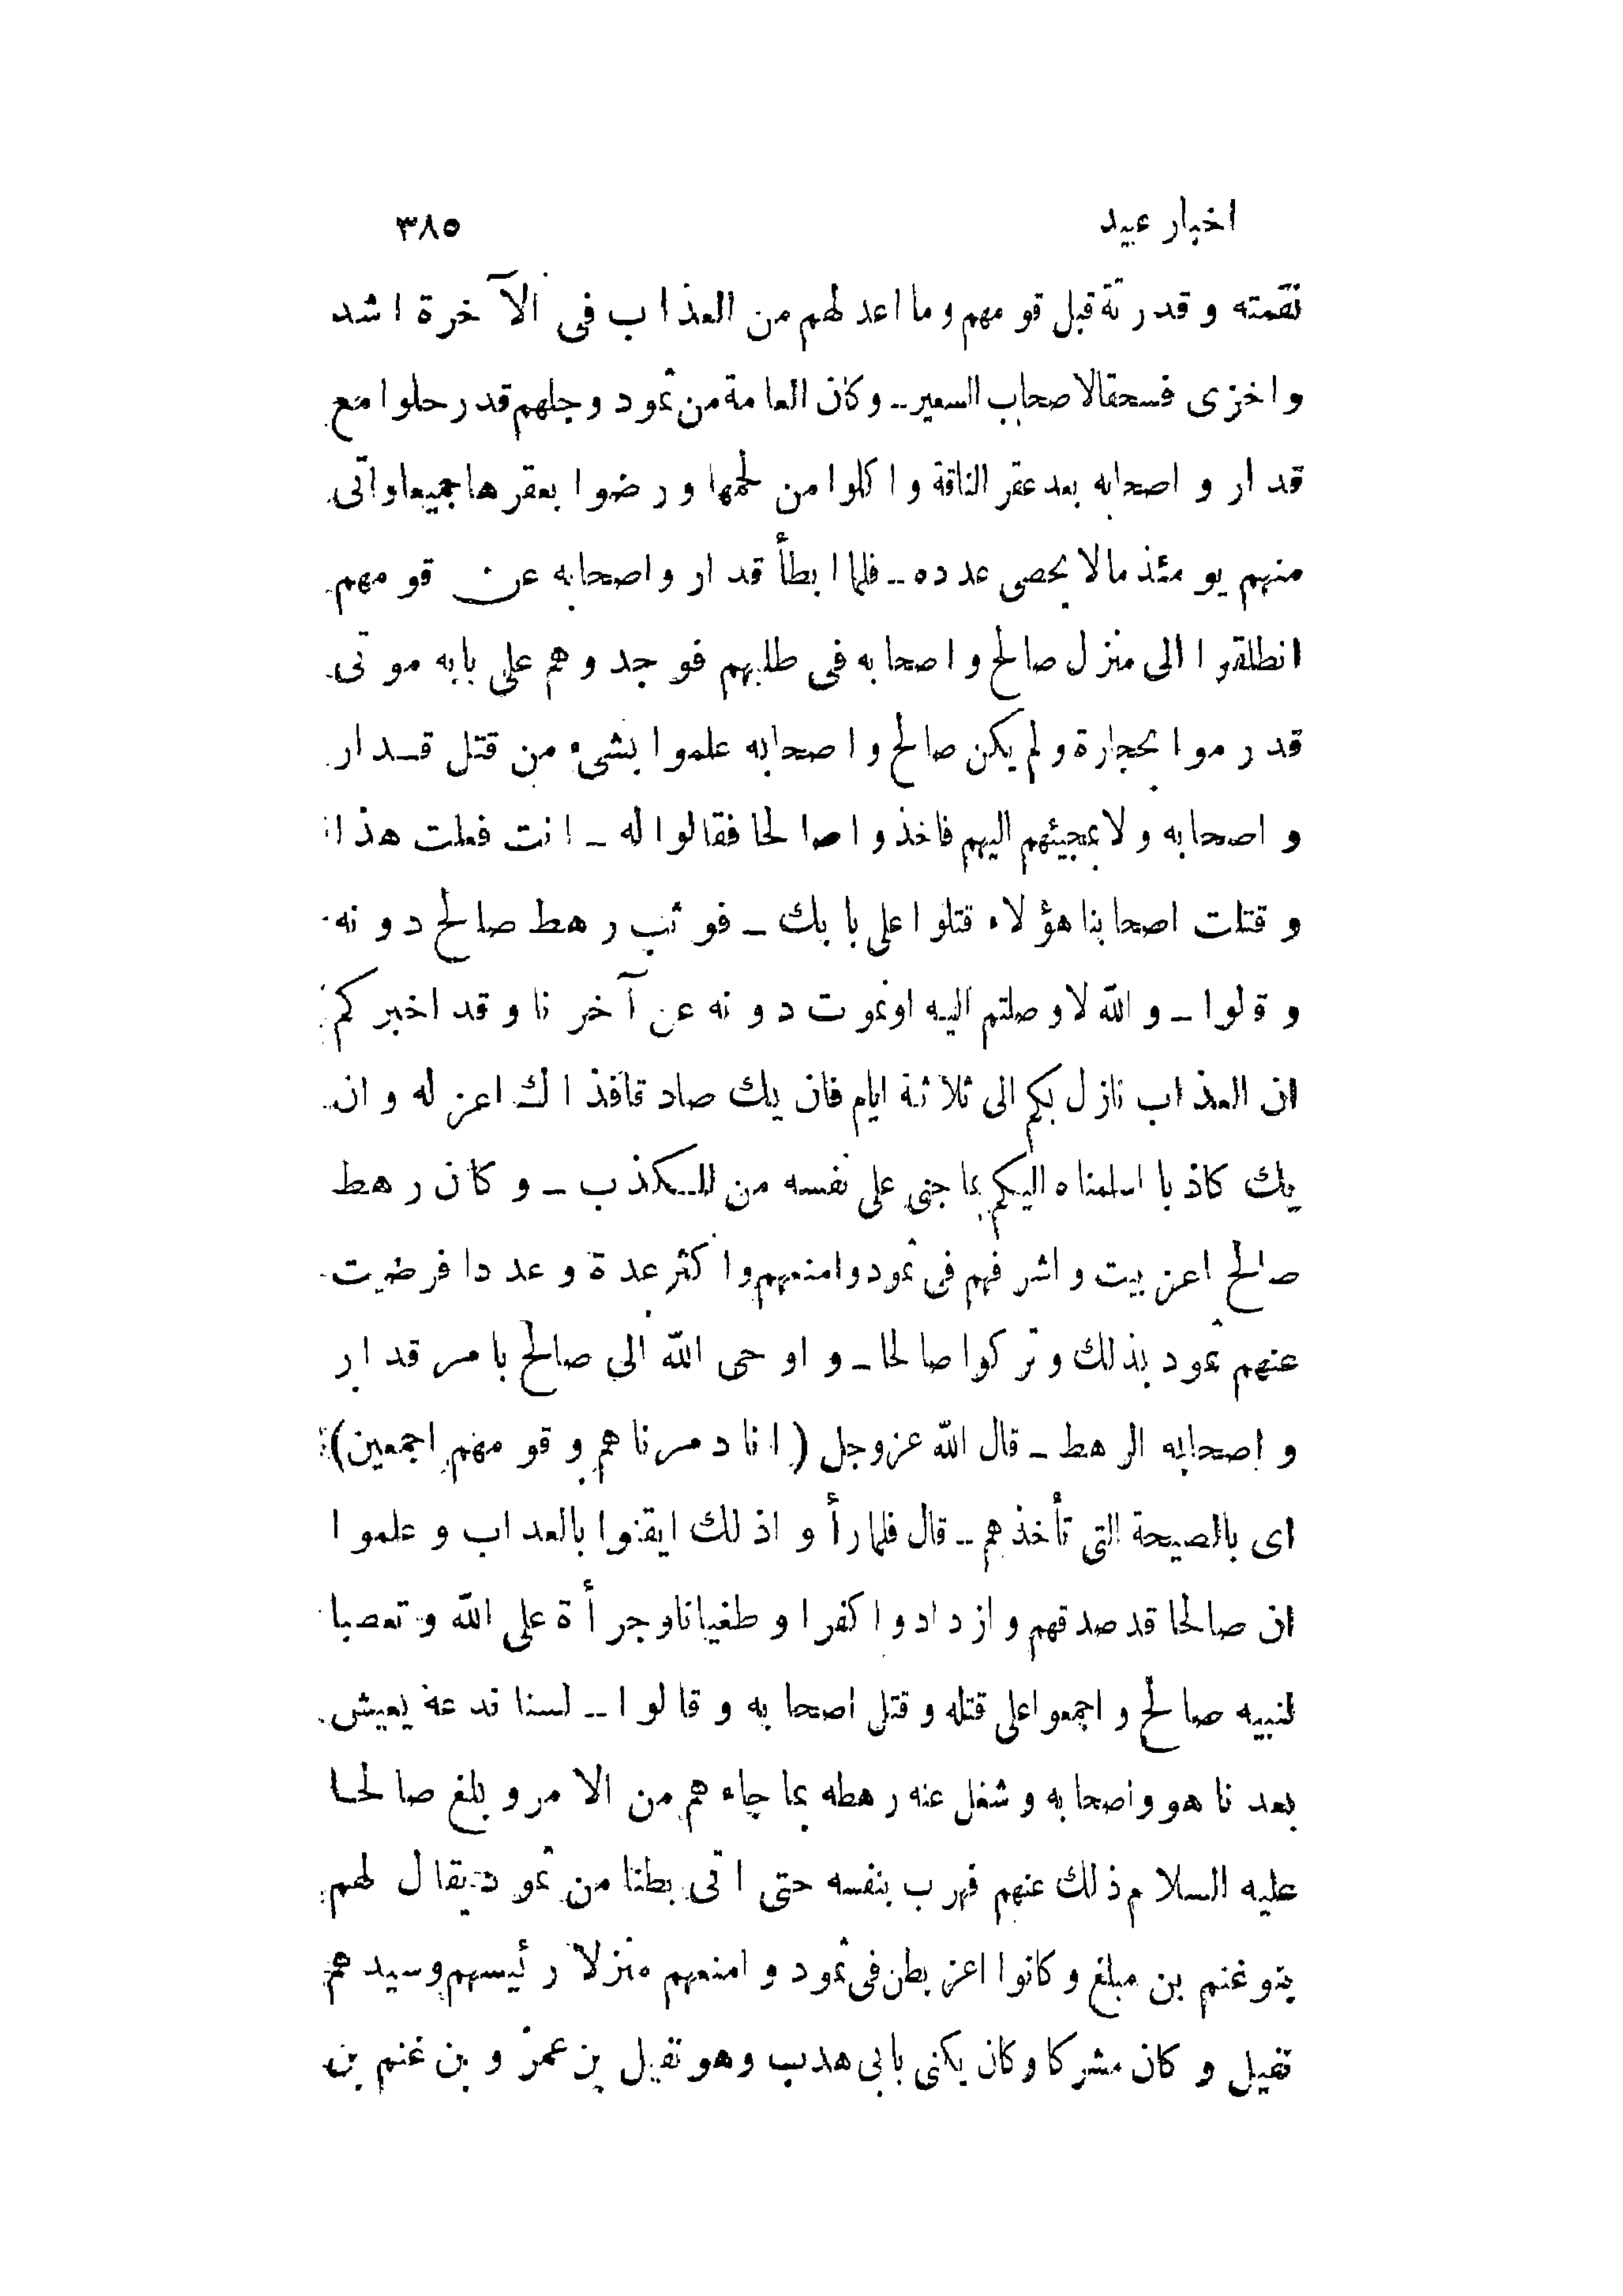 اخبار عبيد ٣٨٥
نقمته وقدرته قبل قومهم وما اعد لهم من العذاب فى الآخرة اشد
واخزى فسحقا لاصحاب السعير ــ وكان العامة من ثمود وجلهم قد رحلوا مع
قدار واصحابه بعد عقر الناقة واكلوا من لحمها ورضوا بعقرها جميعا واتى
منهم يومئذ ما لا يحصى عدده ــ فلما ابطأ قدار واصحابه عن قومهم
انطلقوا الى منزل صالح واصحابه فى طلبهم فوجدوهم على بابه موتى
قد رموا بحجارة ولم يكن صالح واصحابه علموا بشىء من قتل قدار
واصحابه ولا بمجيئهم اليهم فاخذوا صالحا فقالوا له ــ انت فعلت هذا
وقتلت اصحابنا هؤلاء قتلوا على بابك ــ فوثب رهط صالح دونه
وقالوا ــ والله لا وصلتم اليه او نموت دونه عن آخرنا وقد اخبركم
ان العذاب نازل بكم الى ثلاثة ايام فان يك صادقا فذاك اعز له وان
يك كاذبا اسلمناه اليكم بما جنى على نفسه من الكذب ــ وكان رهط
صالح اعز بيت واشرفهم فى ثمود وامنعهم واكثر عدة وعددا فرضيت
عنهم ثمود بذلك وتركوا صالحا ــ واوحى الله الى صالح بامر قدار
واصحابه الرهط ــ قال الله عز وجل (انا دمرناهم وقومهم اجمعين)
اى بالصيحة التى تأخذهم ــ قال فلما رأوا ذلك ايقنوا بالعداب وعلموا
ان صالحا قد صدقهم وازدادوا كفرا وطغيانا وجرأة على الله وتعصبا
لنبيه صالح واجمعوا على قتله وقتل اصحابه وقالوا ــ لسنا ندعه يعيش
بعدنا هو واصحابه وشغل عنه رهطه بما جاءهم من الامر وبلغ صالحا
عليه السلام ذلك عنهم فهرب بنفسه حتى اتى بطنا من ثمود يقال لهم
بنو غنم بن مبلغ وكانوا اعز بطن فى ثمود وامنعهم منزلا رئيسهم وسيدهم
نفيل وكان مشركا وكان يكنى بابى هدب وهو نفيل بن عمرو بن غنم بن